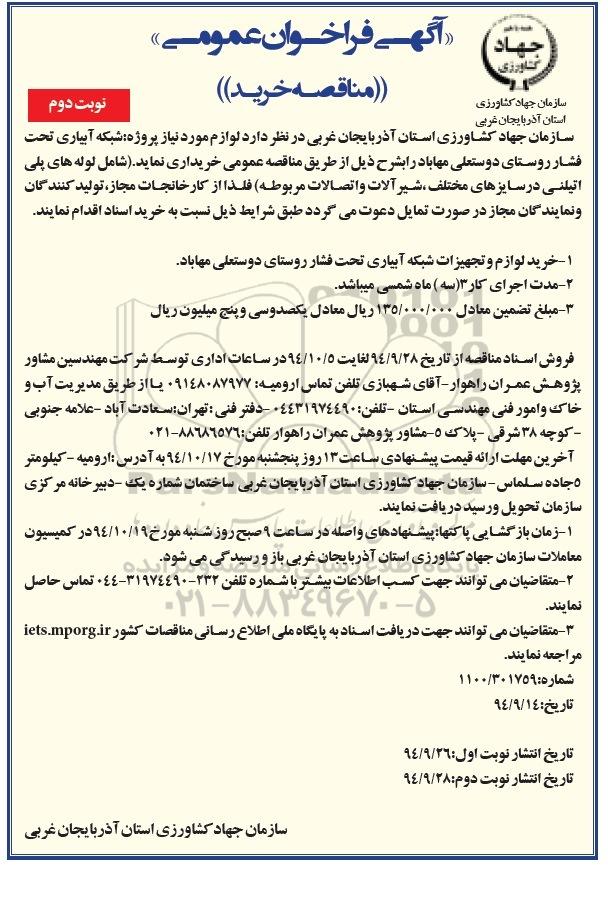 «آگهی فراخوان عمومی»
((مناقصه خرید))
همه با هم
جهاد
کشاورزی
سازمان جهاد کشاورزی
استان آذربایجان غربی
نوبت دوم
سازمان جهاد کشاورزی استان آذربایجان غربی در نظر دارد لوازم مورد نیاز پروژه:شبکه آبیاری تحت
فشار روستای دوستعلی مهاباد رابشرح ذیل از طریق مناقصه عمومی خریداری نماید.(شامل لوله های پلی
اتیلنی درسایزهای مختلف ،شیرآلات واتصالات مربوطه) فلذا از کارخانجات مجاز، تولیدکنندگان
ونمایندگان مجاز در صورت تمایل دعوت می گردد طبق شرایط ذیل نسبت به خرید اسناد اقدام نمایند.
۱-خرید لوازم وتجهیزات شبکه آبیاری تحت فشار روستای دوستعلی مهاباد.
۲-مدت اجرای کار۳(سه ) ماه شمسی میباشد.
۳-مبلغ تضمین معادل ۱۳۵/۰۰۰/۰۰۰ ریال معادل یکصدوسی و پنج میلیون ریال
فروش اسناد مناقصه از تاریخ ۹۴/۹/۲۸ لغایت ۹۴/۱۰/۵ در ساعات اداری توسط شرکت مهندسین مشاور
پژوهش عمران راهوار-آقای شهبازی تلفن تماس ارومیه: ۰۹۱۴۸۰۸۷۹۷۷ یا از طریق مدیریت آب و
خاک وامور فنی مهندسی استان -تلفن:۰۴۴۳۱۹۷۴۴۹۰ -دفتر فنی :تهران:سعادت آباد -علامه جنوبی
-کوچه ۳۸ شرقی -پلاک ۵-مشاور پژوهش عمران راهوار تلفن:۸۸۶۸۶۵۷۶-۰۲۱
آخرین مهلت ارائه قیمت پیشنهادی ساعت ۱۳ روز پنجشنبه مورخ ۹۴/۱۰/۱۷ به آدرس :ارومیه -کیلومتر
۵جاده سلماس- سازمان جهاد کشاورزی استان آذربایجان غربی ساختمان شماره یک -دبیرخانه مرکزی
سازمان تحویل ورسید دریافت نمایند.
۱-زمان بازگشایی پاکتها:پیشنهادهای واصله در ساعت ۹ صبح روز شنبه مورخ ۹۴/۱۰/۱۹ در کمیسیون
معاملات سازمان جهاد کشاورزی استان آذربایجان غربی باز و رسیدگی می شود.
۲-متقاضیان می توانند جهت کسب اطلاعات بیشتر با شماره تلفن ۲۳۲-۳۱۹۷۴۴۹۰-۰۴۴ تماس حاصل
نمایند.
۳-متقاضیان می توانند جهت دریافت اسناد به پایگاه ملی اطلاع رسانی مناقصات کشور iets.mporg.ir
مراجعه نمایند.
شماره:۱۱۰۰/۳۰۱۷۵۹
تاریخ:۹۴/۹/۱۴
تاریخ انتشار نوبت اول:۹۴/۹/۲۶
تاریخ انتشار نوبت دوم:۹۴/۹/۲۸
سازمان جهاد کشاورزی استان آذربایجان غربی
ParsNamadData
پایگاه اطلاع رسانی مناقصه و مزایده
۰۲۱-۸۸۳۴۹۶۷۰-۵